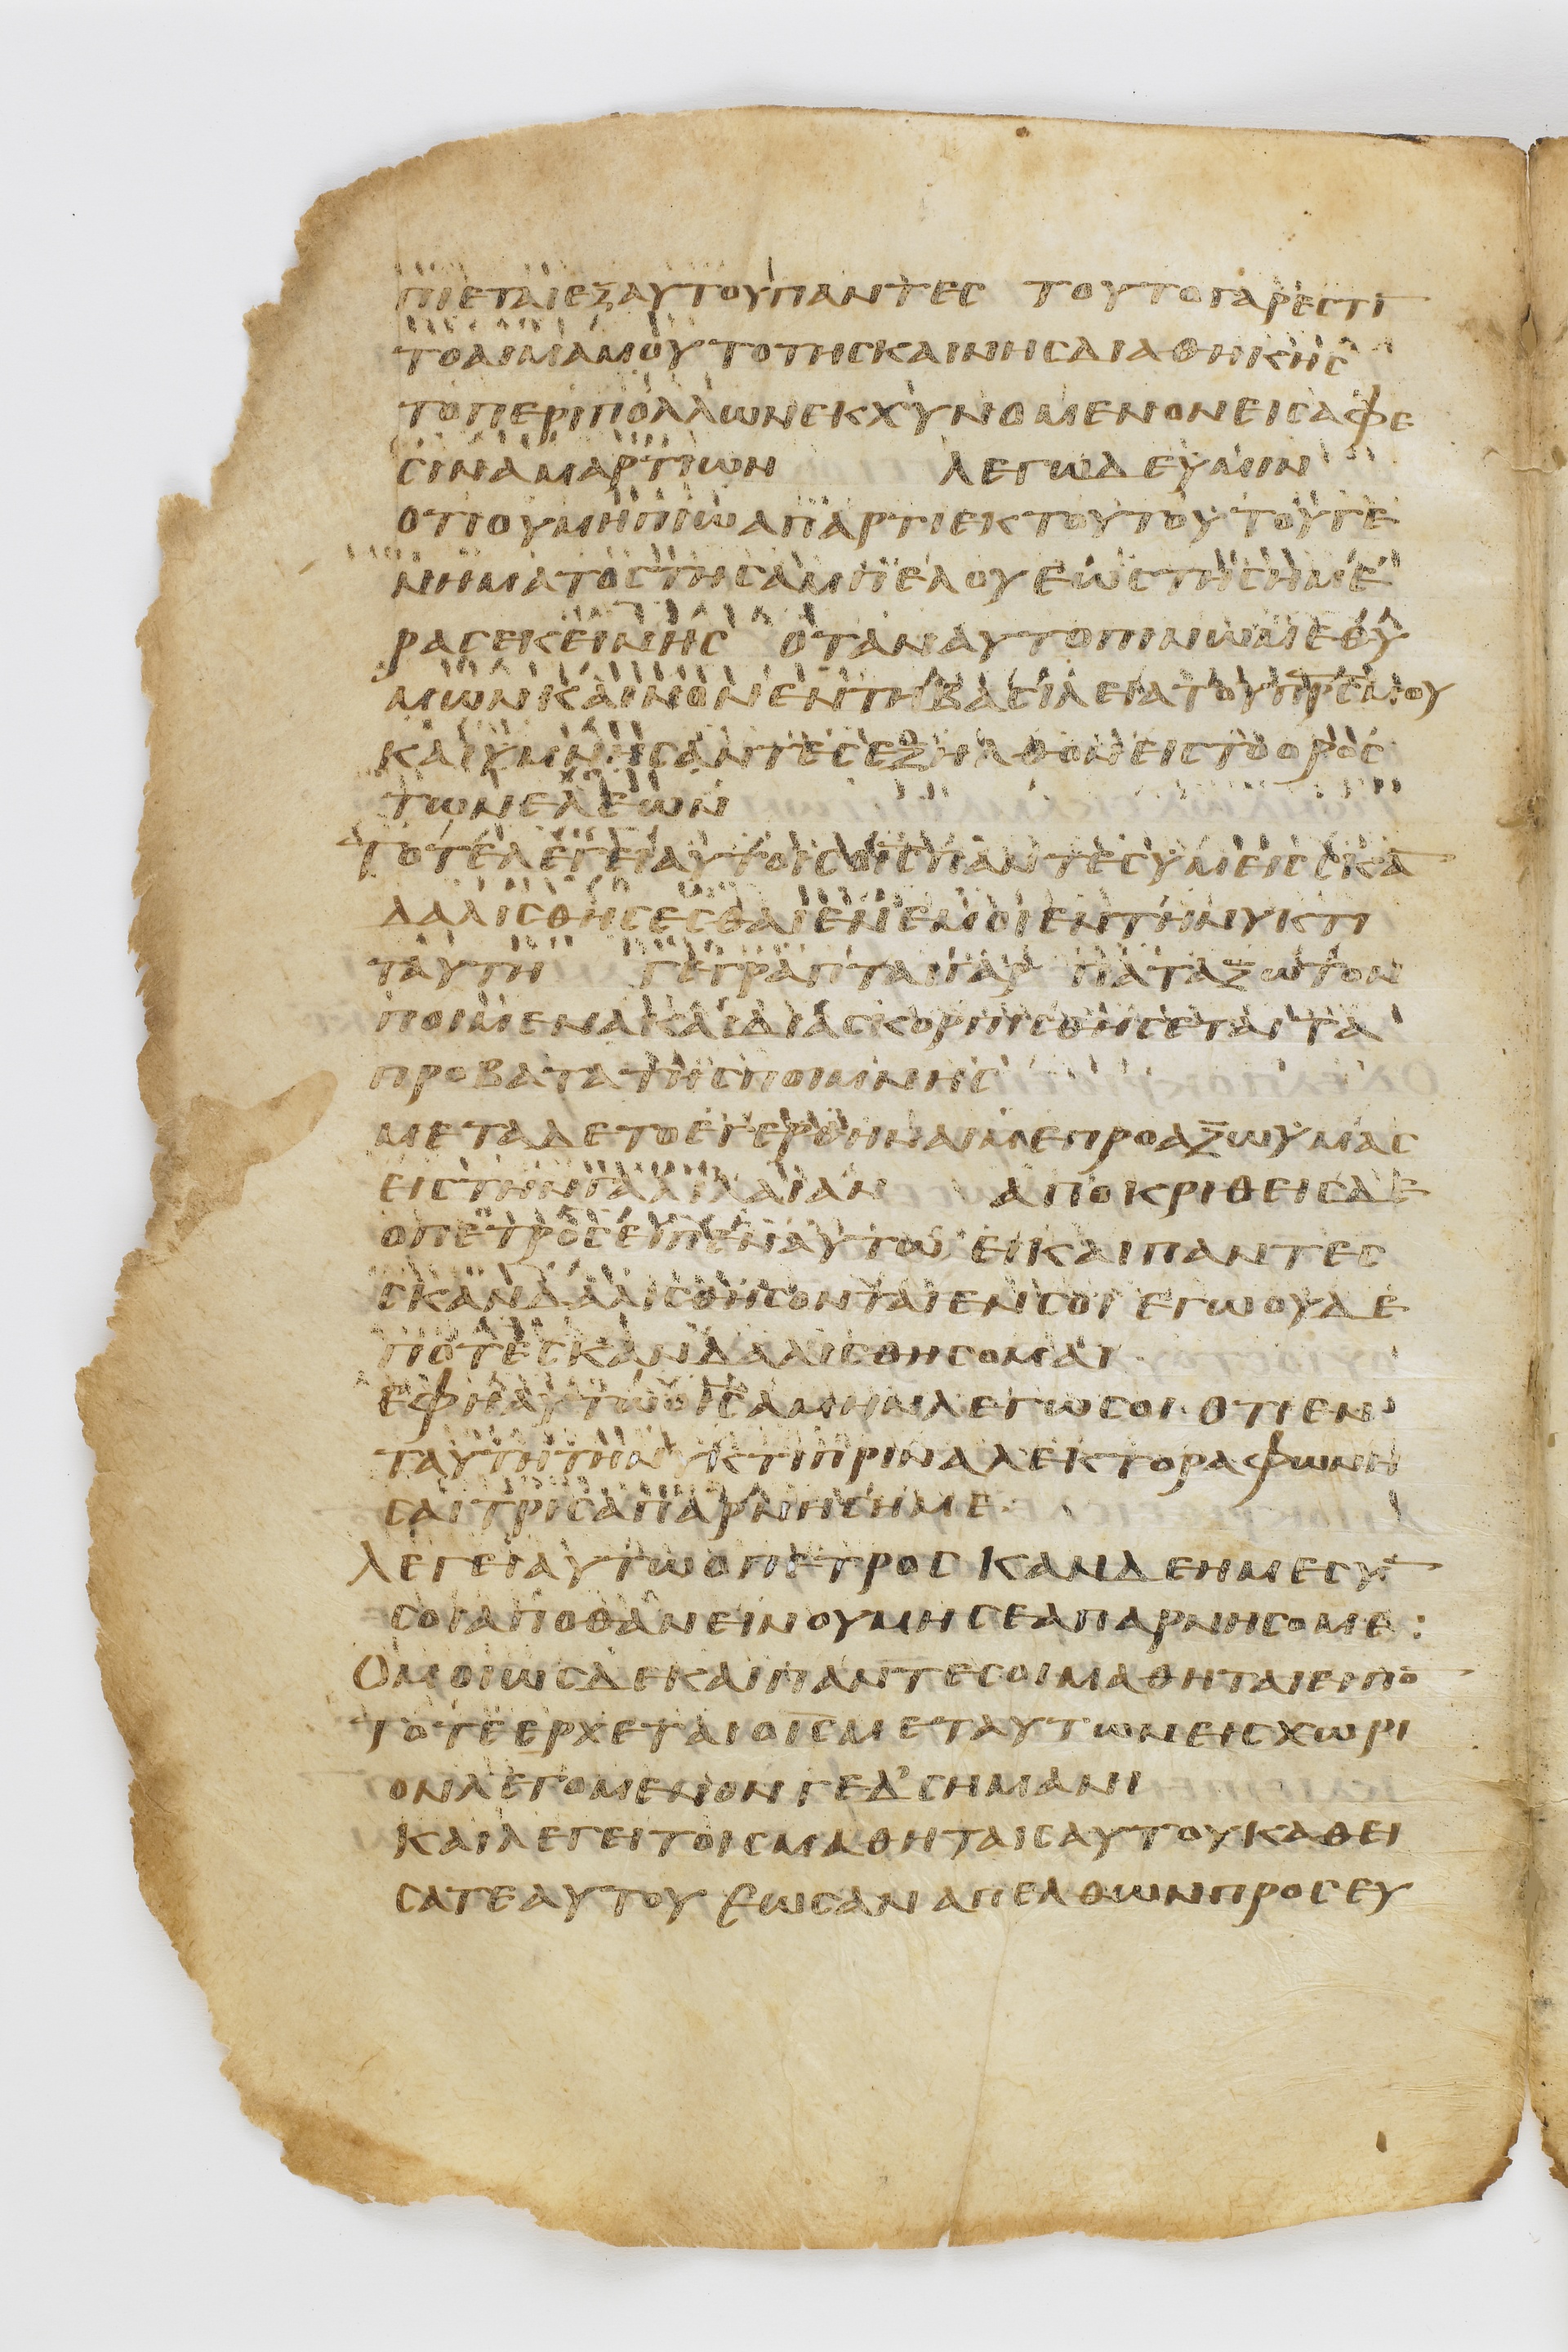 ΠΙΕΤΑΙΕΞΑΥΤΟΥΠΑΝΤΕC ΤΟΥΤΟΓΑΡΕCΤΙ
ΤΟΑΙΜΑΜΟΥΤΟΤΗCΚΑΙΝΗCΔΙΑΘΗΚΗC
ΤΟΠΕΡΙΠΟΛΛΩΝΕΚΧΥΝΟΜΕΝΟΝΕΙCΑΦΕ
CΙΝΑΜΑΡΤΙΩΝ ΛΕΓΩΔΕΥΜΙΝ
ΟΤΙΟΥΜΗΠΙΩΑΠΑΡΤΙΕΚΤΟΥΤΟΥΤΟΥΓΕ
ΝΗΜΑΤΟCΤΗCΑΜΠΕΛΟΥΕΩCΤΗCΗΜΕ
ΡΑCΕΚΕΙΝΗC ΟΤΑΝΑΥΤΟΠΙΝΩΜΕΘΥ
ΜΩΝΚΑΙΝΟΝΕΝΤΗΒΑCΙΛΕΙΑΤΟΥΠΡCΜΟΥ
ΚΑΙΥΜΝΗCΑΝΤΕCΕΞΗΛΘΟΝΕΙCΤΟΟΡΟC
ΤΩΝΕΛΕΩΝ
ΤΟΤΕΛΕΓΕΙΑΥΤΟΙCΟΙCΠΑΝΤΕCΥΜΕΙCCΚΑ
ΔΑΛΙCΘΗCΕCΘΑΙΕΝΕΜΟΙΕΝΤΗΝΥΚΤΙ
ΤΑΥΤΗ ΓΕΓΡΑΠΤΑΙΓΑΡ ΠΑΤΑΞΩΤΟΝ
ΠΟΙΜΕΝΑΚΑΙΔΙΑCΚΟΡΠΙCΘΗCΕΤΑΙΤΑ
ΠΡΟΒΑΤΑΤΗCΠΟΙΜΝΗC
ΜΕΤΑΔΕΤΟΕΓΕΡΘΗΝΑΙΜΕΠΡΟΑΞΩΥΜΑC
ΕΙCΤΗΝΓΑΛΙΛΑΙΑΝ ΑΠΟΚΡΙΘΕΙCΔΕ
ΟΠΕΤΡΟCΕΙΠΕΝΑΥΤΩ ΕΙΚΑΙΠΑΝΤΕC
CΚΑΝΔΑΛΙCΘΗCΟΝΤΑΙΕΝCΟΙ ΕΓΩΟΥΔΕ
ΠΟΤΕCΚΑΝΔΑΛΙCΘΗCΟΜΑΙ
ΕΦΗΑΥΤΩΟΙCΑΜΗΝΛΕΓΩCΟΙ ΟΤΙΕΝ
ΤΑΥΤΗΤΗΝΥΚΤΙΠΡΙΝΑΛΕΚΤΟΡΑΦΩΝΗ
CΑΙΤΡΙCΑΠΑΡΝΗCΗΜΕ
ΛΕΓΕΙΑΥΤΩΟΠΕΤΡΟC ΚΑΝΔΕΗΜΕCΥ
CΟΙΑΠΟΘΑΝΕΙΝΟΥΜΗCΕΑΠΑΡΝΗCΟΜΕ:
ΟΜΟΙΩCΔΕΚΑΙΠΑΝΤΕCΟΙΜΑΘΗΤΑΙΕΙΠΟ
ΤΟΤΕΕΡΧΕΤΑΙΟΙCΜΕΤΑΥΤΩΝΕΙCΧΩΡΙ
ΟΝΛΕΓΟΜΕΝΟΝΓΕΔ'CΗΜΑΝΙ
ΚΑΙΛΕΓΕΙΤΟΙCΜΑΘΗΤΑΙCΑΥΤΟΥΚΑΘΕΙ
CΑΤΕΑΥΤΟΥ ΕΩCΑΝΑΠΕΛΘΩΝΠΡΟCΕΥ